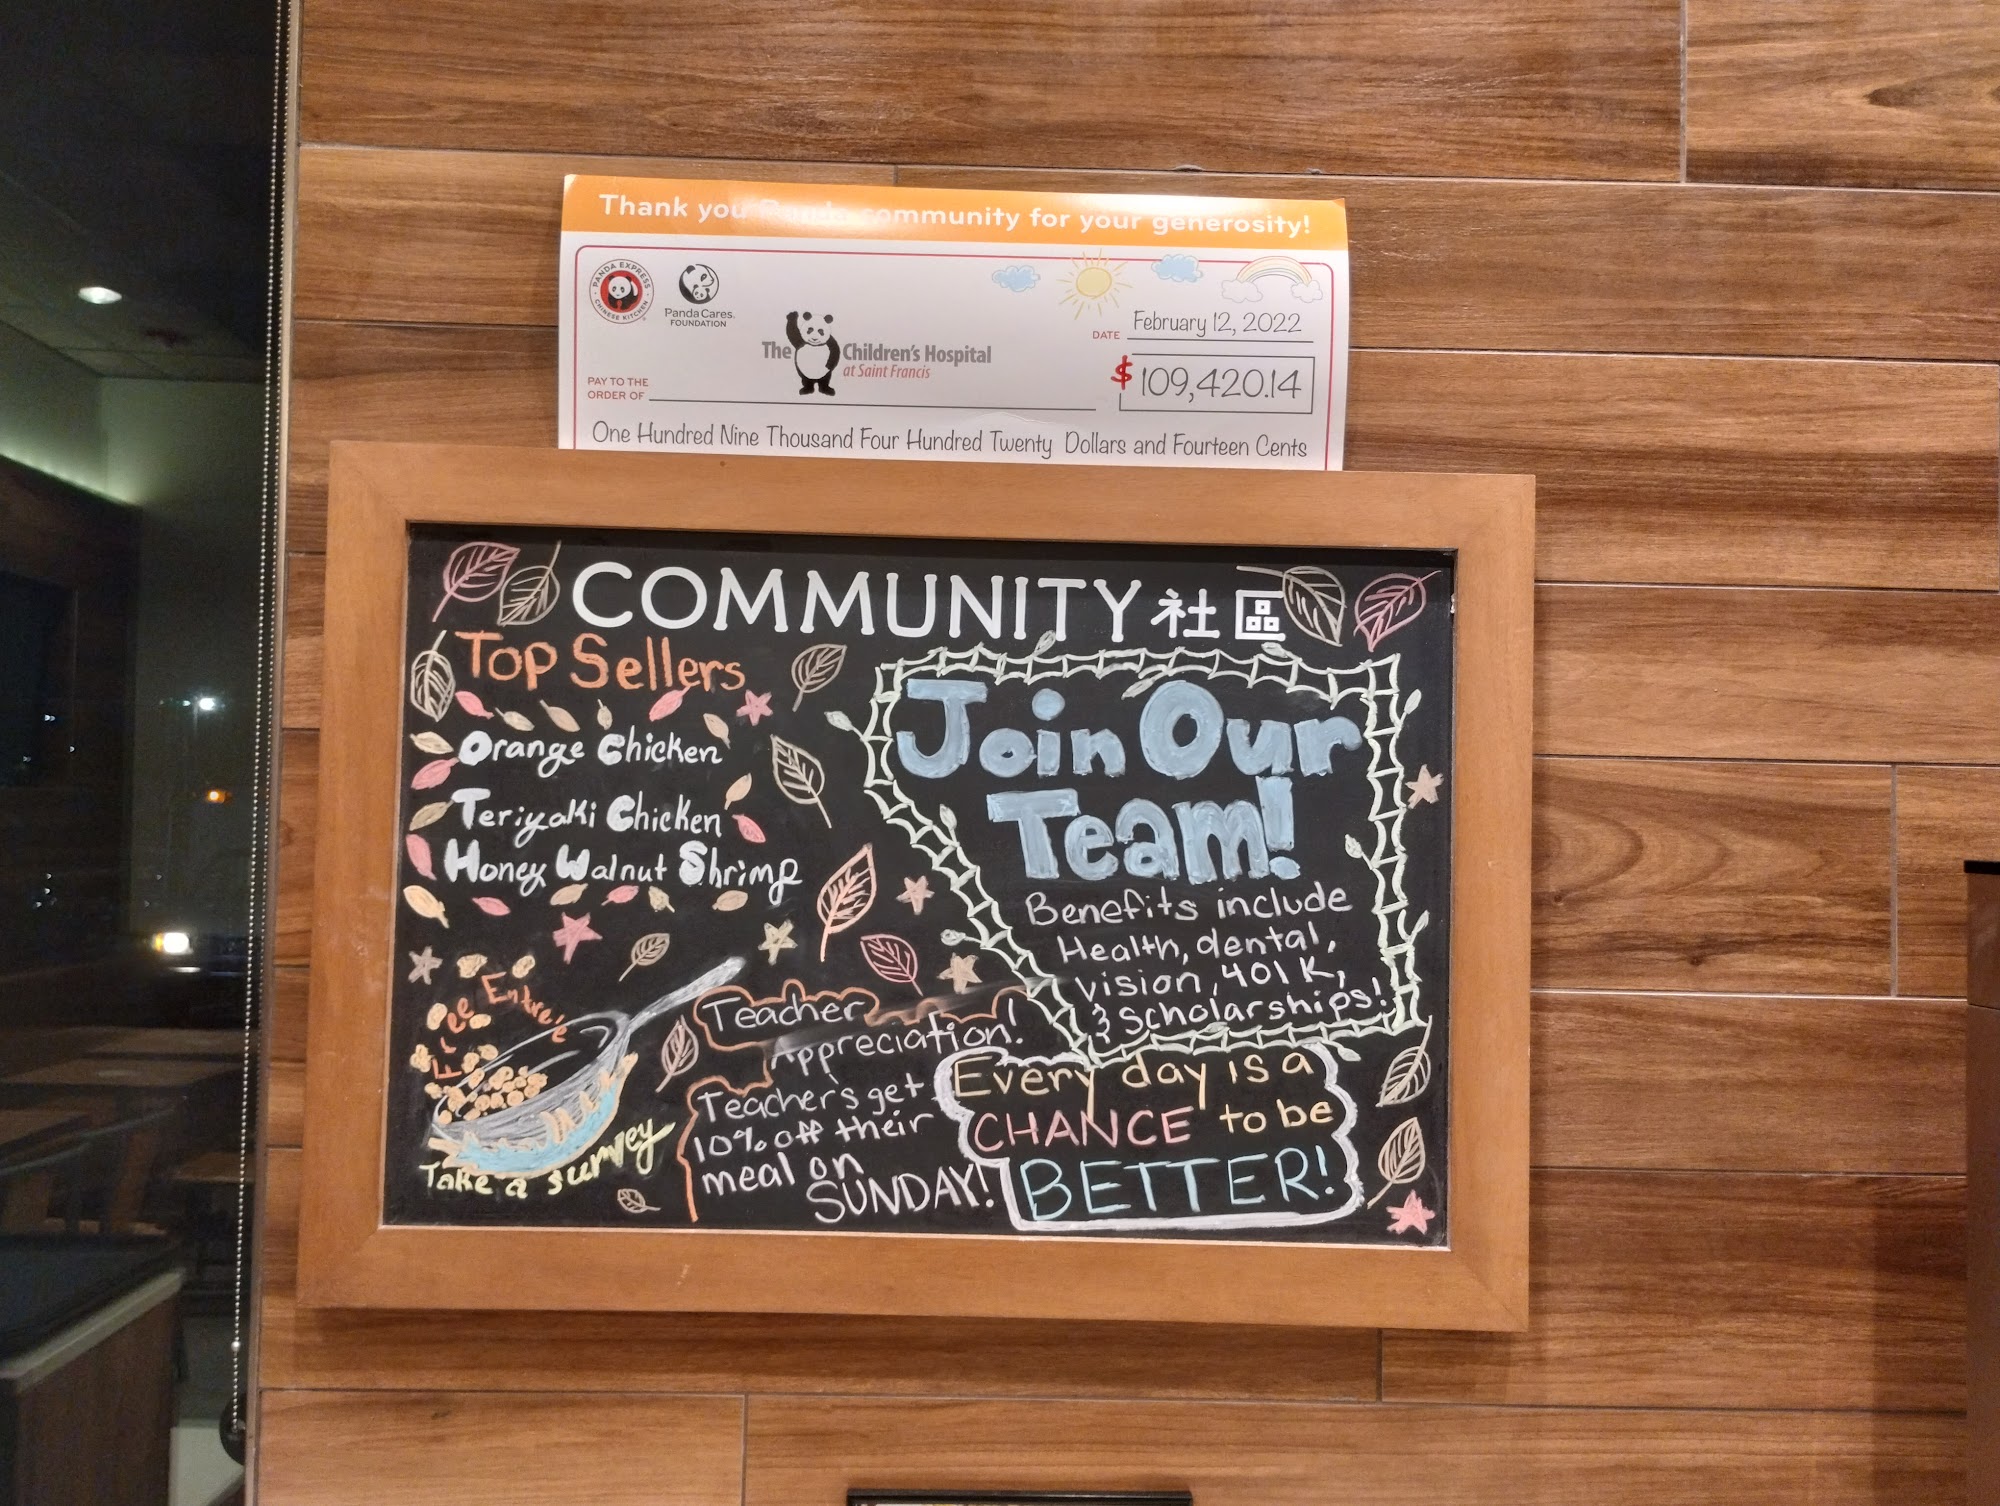 Thank you Panda community for your generosity!
PANDA EXPRESS
CHINESE KITCHEN
Panda Cares.
FOUNDATION
The Children's Hospital
at Saint Francis
DATE February 12, 2022
$ 109,420.14
PAY TO THE
ORDER OF
One Hundred Nine Thousand Four Hundred Twenty Dollars and Fourteen Cents
COMMUNITY 社區
Top Sellers
Orange Chicken
Teriyaki Chicken
Honey Walnut Shrimp
Free Entre'e
Take a survey
Teacher
Appreciation!
Teacher's get
10% off their
meal on
SUNDAY!
Join Our
Team!
Benefits include
Health, dental,
vision, 401K,
& Scholarships!
Every day is a
CHANCE to be
BETTER!